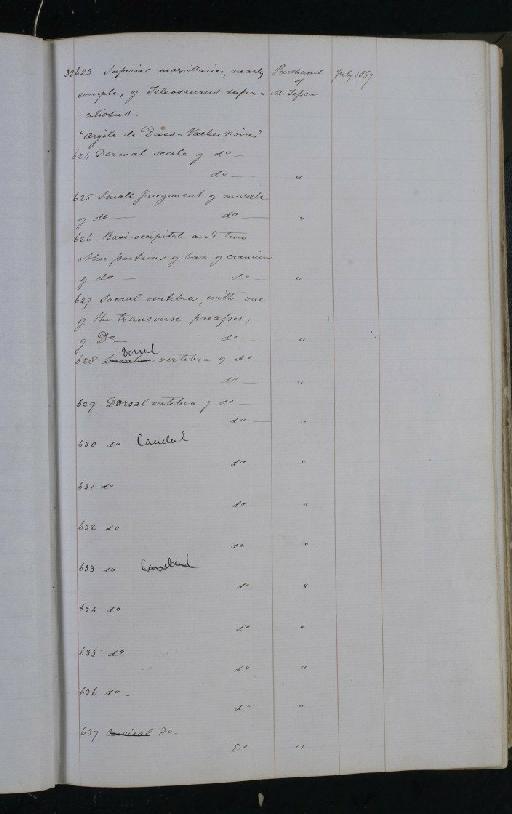 32623 Superior maxillaries, nearly Purchased July 1857
complete, of Teleosaurus super- of M. Tesson
ciliosus.
"Argile de Dives - Vaches noires"
624 Dermal scute of do —
do — "
625 Small fragment of muzzle
of do — do — "
626 Basi-occipital and two
other portions of base of cranium
of do — do — "
627 Sacral vertebra, with one
of the transverse processes,
of Do — do — "
628 Dorsal vertebra of do
do — "
629 Dorsal vertebra of do —
do — "
630 do Caudal
do "
631 do
do "
632 do
do "
633 do Caudal
do "
634 do
do "
635 do
do "
636 do —
do "
637 Cervical Do —
Do "